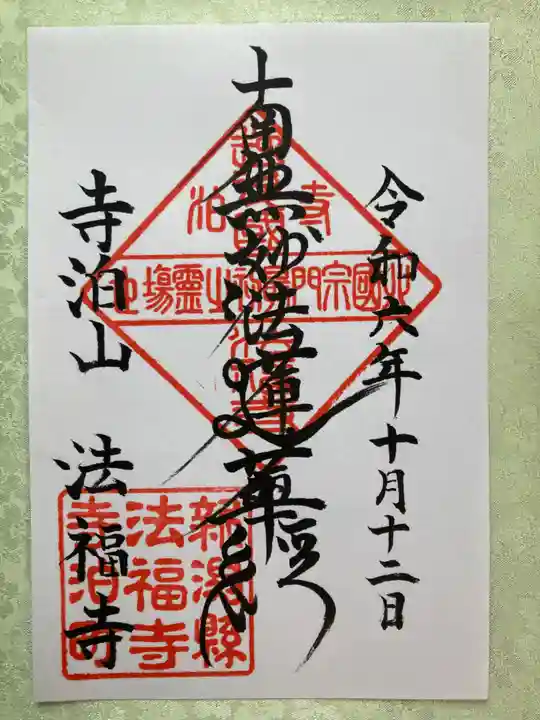 令和六年十月十二日
南無妙法蓮華経
寺泊山 法福寺
寺泊
新潟縣
法福寺
寺泊町